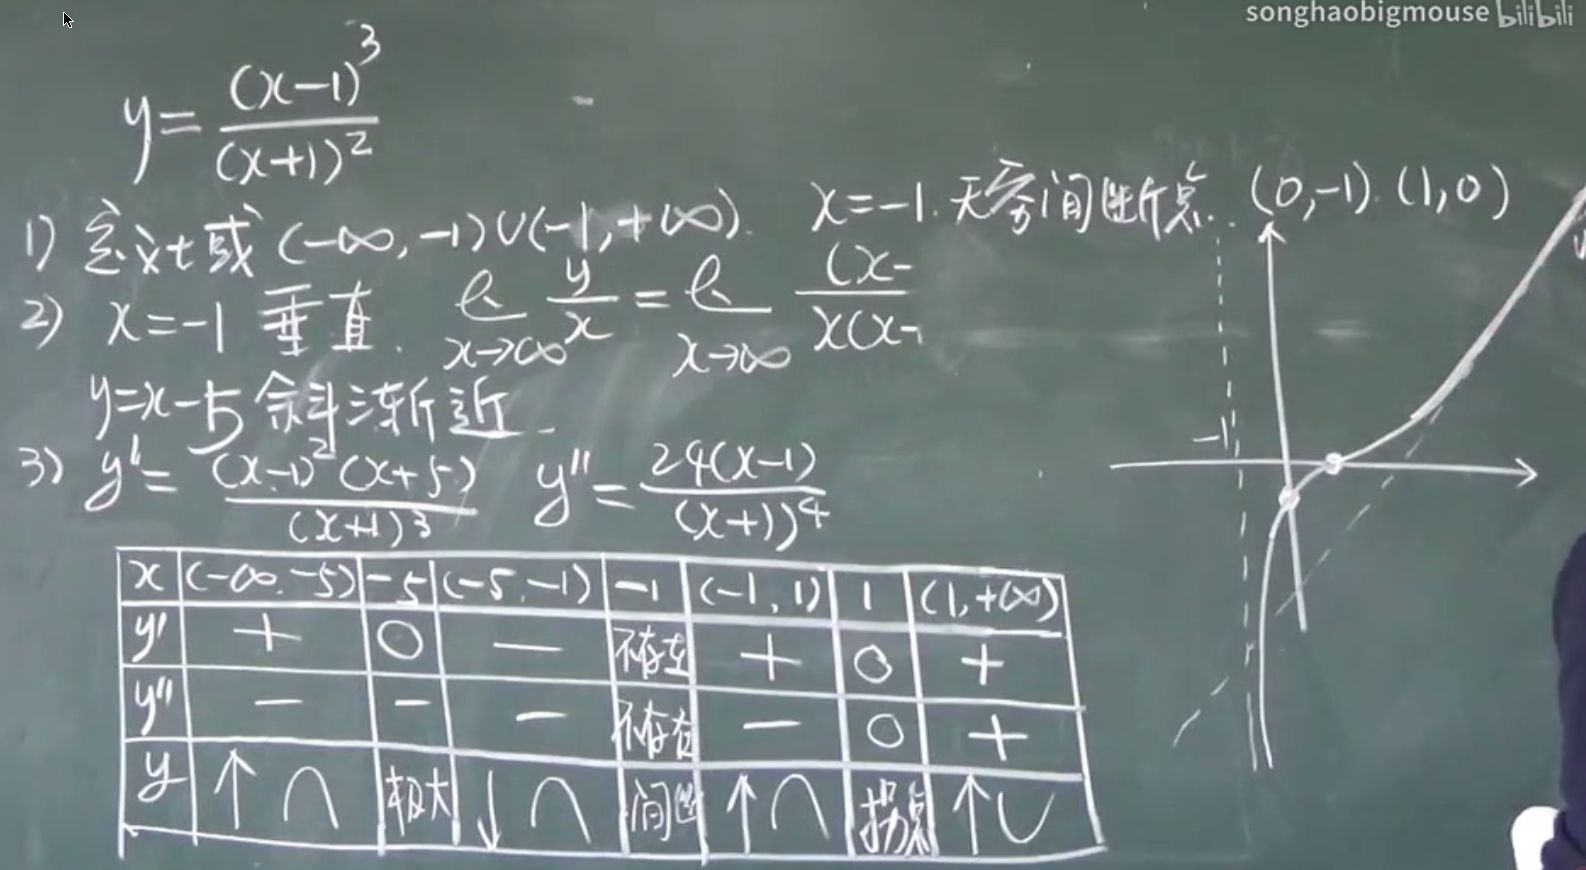 songhaobigmouse bilibili
y=(x-1)³/(x+1)²
1) 定义域 (-∞,-1)∪(-1,+∞). x=-1.无穷间断点. (0,-1). (1,0)
2) x=-1 垂直. lim x→∞ y/x = lim x→∞ (x-/x(x-
y=x-5 斜渐近
3) y'=(x-1)²(x+5)/(x+1)³ y''=24(x-1)/(x+1)⁴
-1
x (-∞.-5) -5 (-5.-1) -1 (-1,1) 1 (1,+∞)
y' + 0 - 不存在 + 0 +
y'' - - - 不存在 - 0 +
y ↑∩ 极大 ↓∩ 间断 ↑∩ 拐点 ↑∪